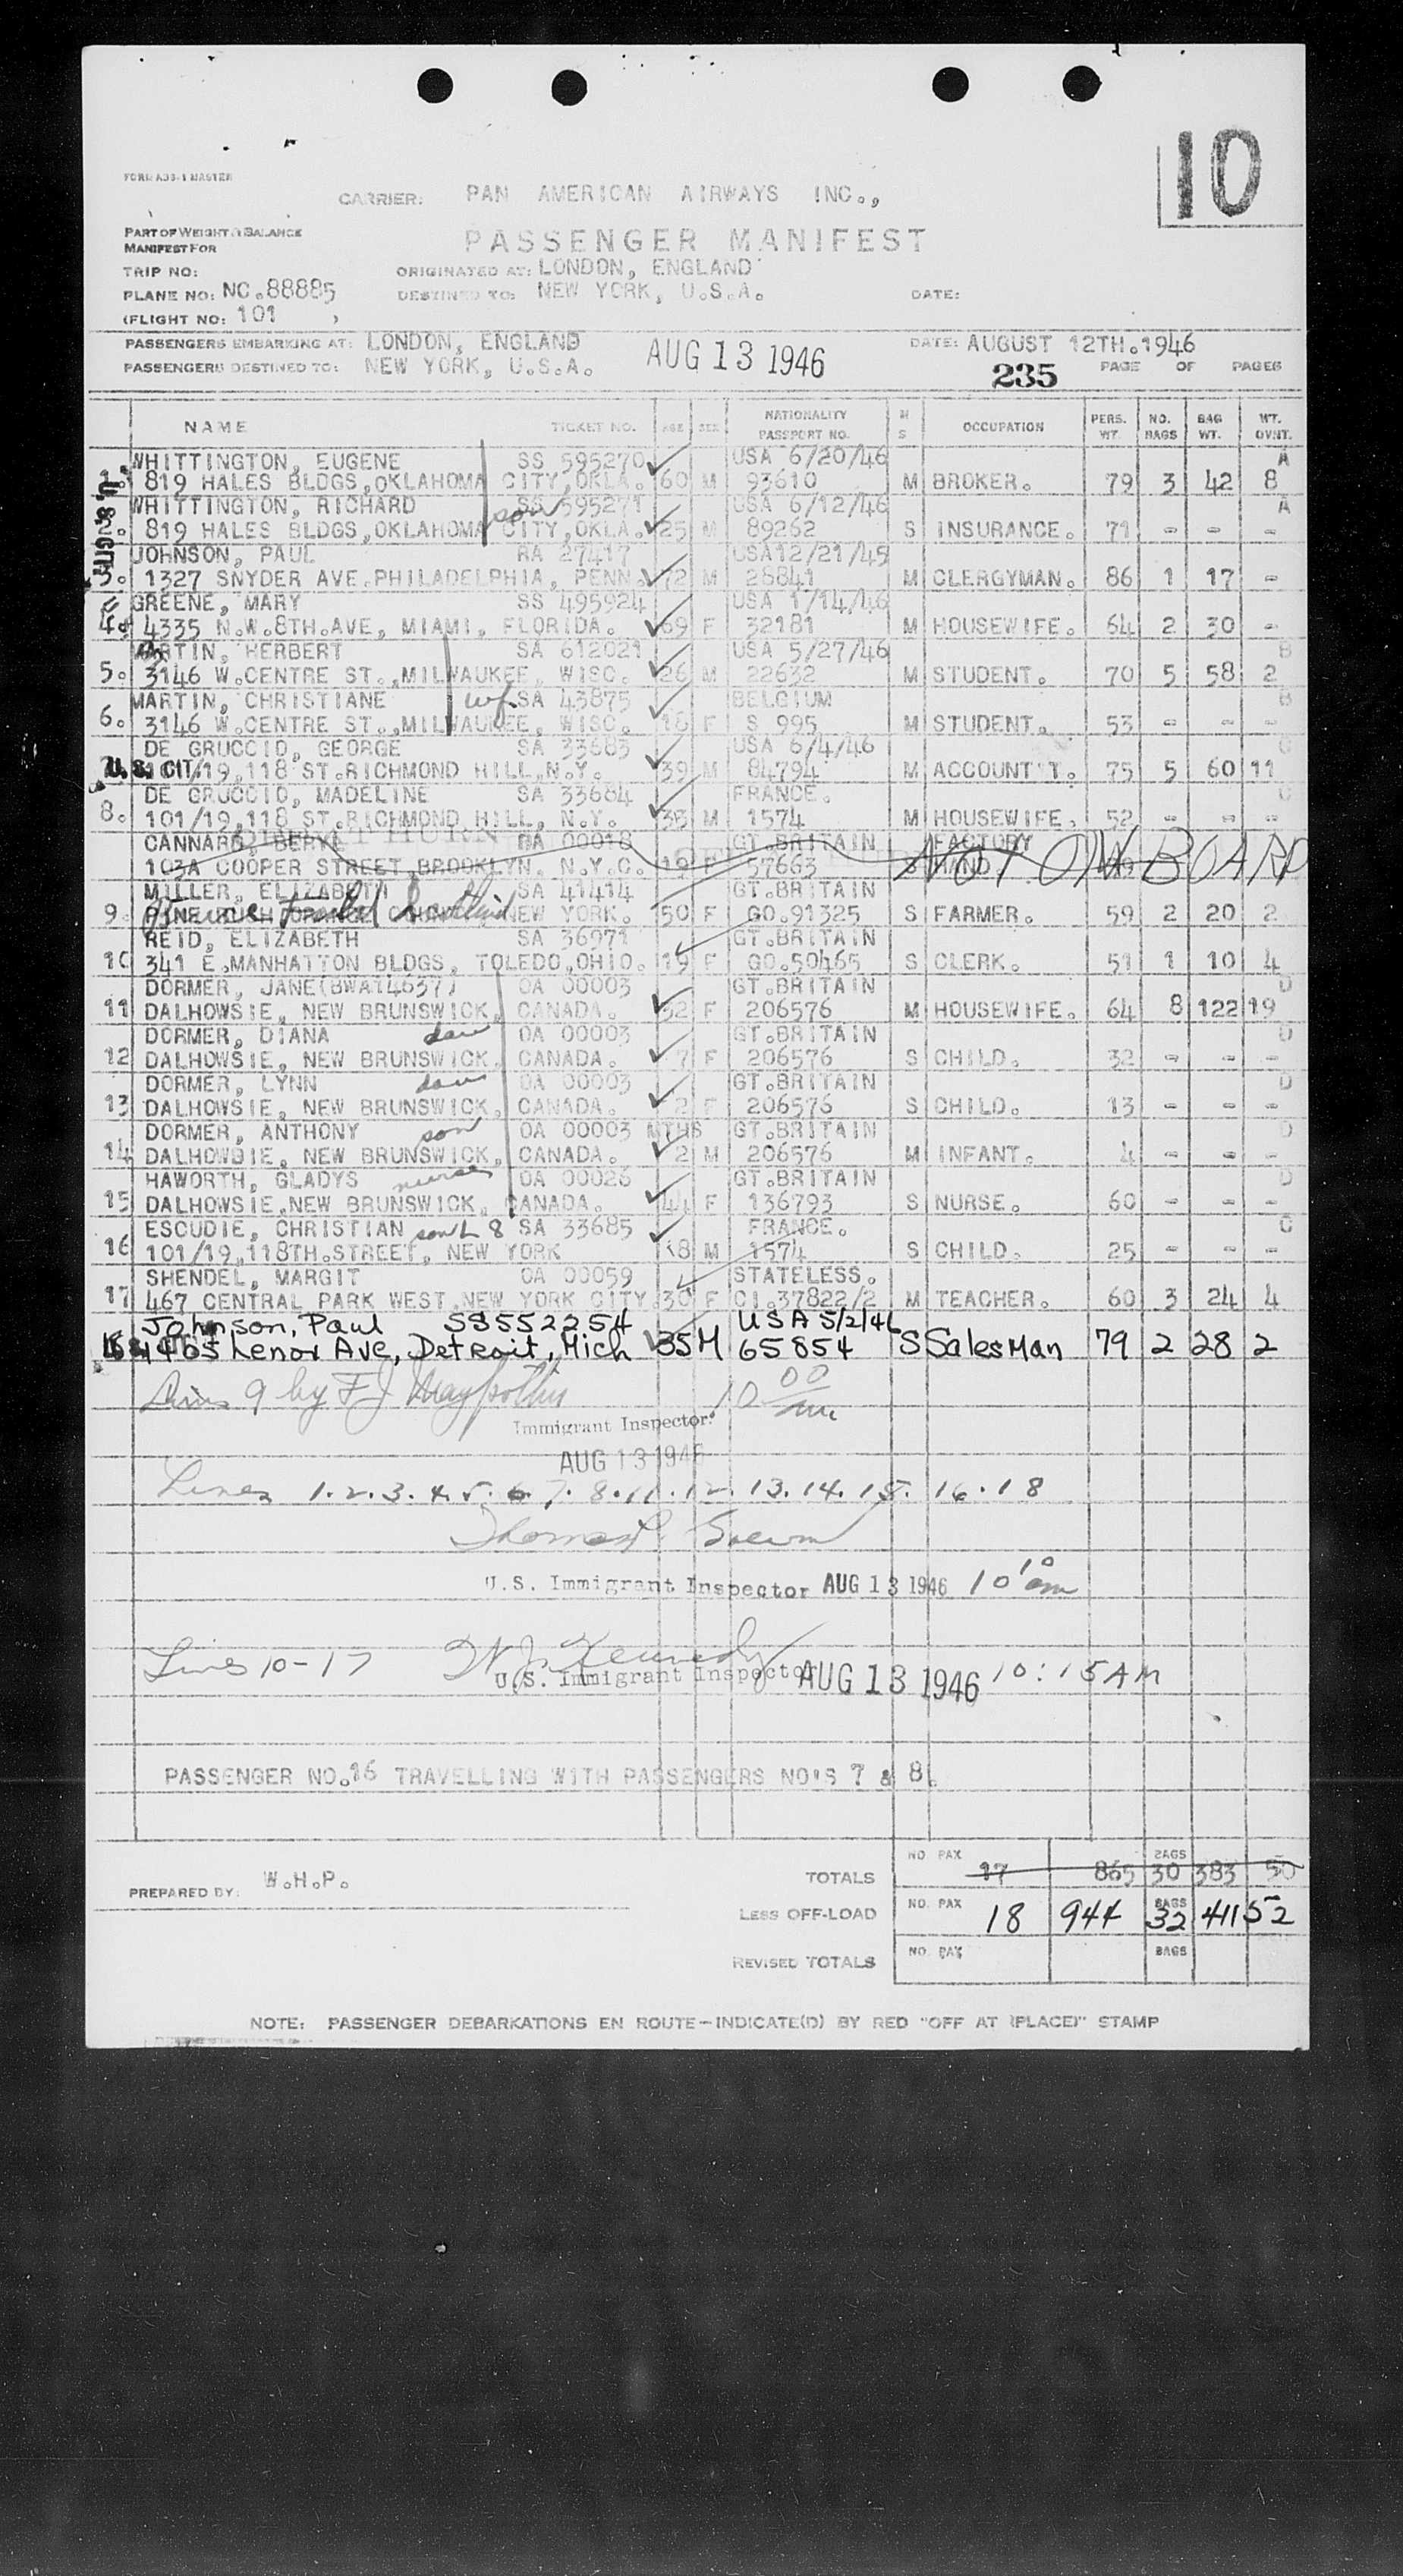 10
FORM A33-1 MASTER
CARRIER: PAN AMERICAN AIRWAYS INC.,
PART OF WEIGHT & BALANCE
MANIFEST FOR
PASSENGER MANIFEST
TRIP NO: ORIGINATED AT: LONDON, ENGLAND
PLANE NO: NC.88885 DESTINED TO: NEW YORK, U.S.A. DATE:
(FLIGHT NO: 101 )
PASSENGERS EMBARKING AT: LONDON, ENGLAND AUG 13 1946 DATE: AUGUST 12TH.1946
PASSENGERS DESTINED TO: NEW YORK, U.S.A. 235 PAGE OF PAGES
NAME TICKET NO. AGE SEX NATIONALITY PASSPORT NO. M S OCCUPATION PERS. WT. NO. BAGS BAG WT. WT. OVHT.
WHITTINGTON, EUGENE SS 595270 USA 6/20/46 A
819 HALES BLDGS,OKLAHOMA CITY,OKLA. 60 M 93610 M BROKER. 79 3 42 8
WHITTINGTON, RICHARD son SS 595271 USA 6/12/46 A
819 HALES BLDGS,OKLAHOMA CITY,OKLA. 25 M 89262 S INSURANCE. 71 - - -
JOHNSON, PAUL RA 27417 USA12/21/45
3. 1327 SNYDER AVE.PHILADELPHIA, PENN. 72 M 28841 M CLERGYMAN. 86 1 17 -
GREENE, MARY SS 495924 USA 1/14/46
4. 4335 N.W.8TH.AVE, MIAMI, FLORIDA. 69 F 32181 M HOUSEWIFE. 64 2 30 -
MARTIN, HERBERT SA 612021 USA 5/27/46 B
5. 3146 W.CENTRE ST.,MILWAUKEE, WISC. 26 M 22632 M STUDENT. 70 5 58 2
MARTIN, CHRISTIANE wf SA 43875 BELGIUM B
6. 3146 W.CENTRE ST.,MILWAUKEE, WISC. 18 F S 995 M STUDENT. 53 - - -
DE GRUCCIO, GEORGE SA 33683 USA 6/4/46 C
U.S. CIT. 101/19,118 ST.RICHMOND HILL,N.Y. 39 M 84794 M ACCOUNT'T. 75 5 60 11
DE GRUCCIO, MADELINE SA 33684 FRANCE. C
8. 101/19,118 ST.RICHMOND HILL, N.Y. 35 M 1574 M HOUSEWIFE. 52 - - -
CANNARD, BERYL OA 00018 GT.BRITAIN FACTORY
103A COOPER STREET,BROOKLYN. N.Y.C. 19 F 57663 HAND NOT ON BOARD
MILLER, ELIZABETH SA 41414 GT.BRITAIN
9. NEW YORK. 50 F GO.91325 S FARMER. 59 2 20 2
REID, ELIZABETH SA 36971 GT.BRITAIN
10 341 E.MANHATTON BLDGS, TOLEDO,OHIO. 19 F GO.50465 S CLERK. 51 1 10 4
DORMER, JANE(BWA14637) OA 00003 GT.BRITAIN D
11 DALHOWSIE, NEW BRUNSWICK, CANADA. 32 F 206576 M HOUSEWIFE. 64 8 122 19
DORMER, DIANA dau OA 00003 GT.BRITAIN D
12 DALHOWSIE, NEW BRUNSWICK, CANADA. 7 F 206576 S CHILD. 32 - - -
DORMER, LYNN dau OA 00003 GT.BRITAIN D
13 DALHOWSIE, NEW BRUNSWICK, CANADA. 2 F 206576 S CHILD. 13 - - -
DORMER, ANTHONY son OA 00003 MTHS GT.BRITAIN D
14 DALHOWSIE, NEW BRUNSWICK, CANADA. 2 M 206576 M INFANT. 4 - - -
HAWORTH, GLADYS nurse OA 00026 GT.BRITAIN D
15 DALHOWSIE,NEW BRUNSWICK, CANADA. 44 F 136793 S NURSE. 60 - - -
ESCUDIE, CHRISTIAN son L 8 SA 33685 FRANCE. C
16 101/19,118TH.STREET, NEW YORK 8 M 1574 S CHILD. 25 - - -
SHENDEL, MARGIT OA 00059 STATELESS.
17 467 CENTRAL PARK WEST,NEW YORK CITY. 30 F CI.37822/2 M TEACHER. 60 3 24 4
Johnson, Paul SS552254 USA 5/2/46
4405 Lenox Ave, Detroit, Mich 35 M 65854 S SalesMan 79 2 28 2
Line 9 by F J 10 00 am
Immigrant Inspector.
AUG 13 1946
Lines 1.2.3.4.5.6.7.8.11.12.13.14.15.16.18
Thomas
U.S. Immigrant Inspector AUG 13 1946 10 10 am
Lines 10-17 W.J. Kennedy
U.S. Immigrant Inspector AUG 13 1946 10:15 AM
PASSENGER NO.16 TRAVELLING WITH PASSENGERS NO'S 7 & 8.
TOTALS NO PAX 17 865 BAGS 30 383 50
PREPARED BY: W.H.P.
LESS OFF-LOAD NO. PAX 18 944 BAGS 32 411 52
REVISED TOTALS NO. PAX BAGS
NOTE: PASSENGER DEBARKATIONS EN ROUTE-INDICATE(D) BY RED "OFF AT (PLACE)" STAMP